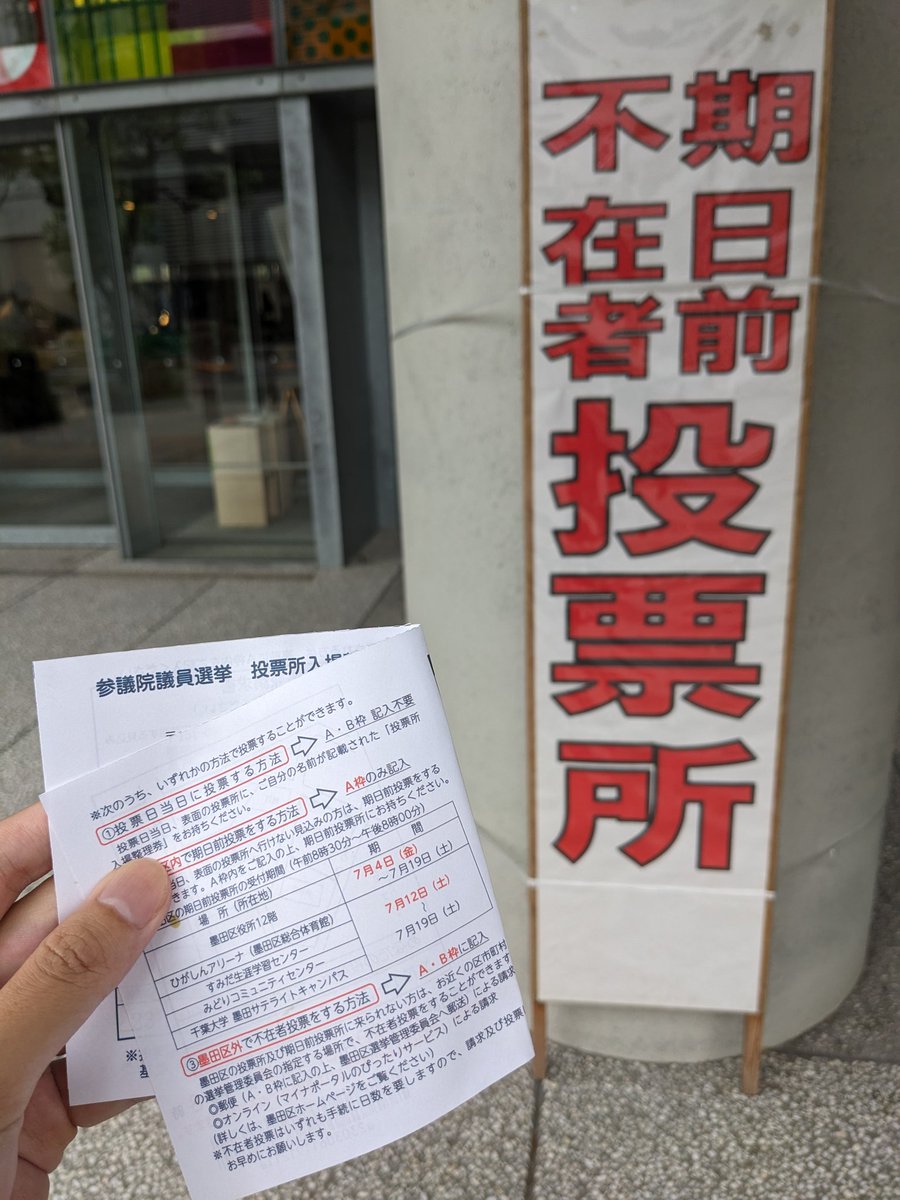 期日前
不在者
投票所
参議院議員選挙 投票所入場
※次のうち、いずれかの方法で投票することができます。
①投票日当日に投票する方法 ⇨ A・B枠 記入不要
投票日当日、表面の投票所に、ご自分の名前が記載された「投票所
入場整理券」をお持ちください。
区内で期日前投票をする方法 ⇨ A枠のみ記入
当日、表面の投票所へ行けない見込みの方は、期日前投票をする
きます。A枠内をご記入の上、期日前投票所にお持ちください。
区の期日前投票所の受付期間（午前8時30分～午後8時00分）
場 所（所在地） 期 間
墨田区役所12階 7月4日（金）～7月19日（土）
ひがしんアリーナ（墨田区総合体育館） 7月12日（土）
すみだ生涯学習センター ～
みどりコミュニティセンター 7月19日（土）
千葉大学 墨田サテライトキャンパス
③墨田区外で不在者投票をする方法 ⇨ A・B枠に記入
墨田区の投票所及び期日前投票所に来られない方は、お近くの区市町村
の選挙管理委員会の指定する場所で、不在者投票をすることができます
◎郵便（A・B枠に記入の上、墨田区選挙管理委員会へ郵送）による請求
◎オンライン（マイナポータルのぴったりサービス）による請求
（詳しくは、墨田区ホームページをご覧ください）
※不在者投票はいずれも手続に日数を要しますので、請求及び投票
お早めにお願いします。